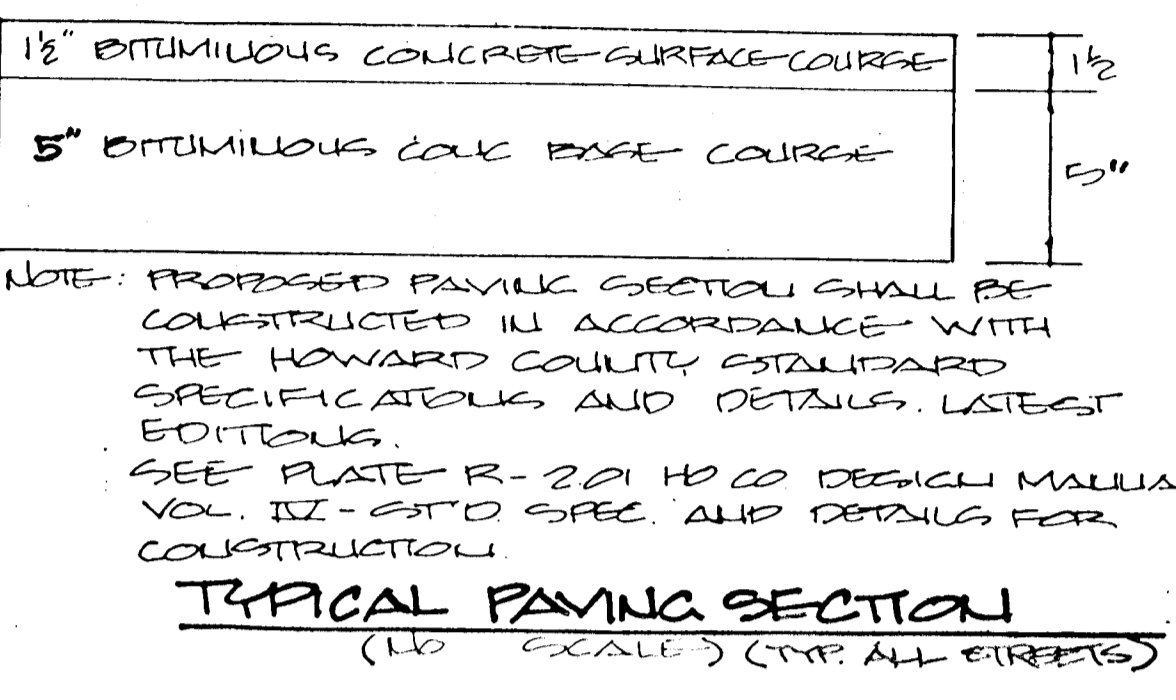 1½" BITUMINOUS CONCRETE SURFACE COURSE
1½
5" BITUMINOUS CONC BASE COURSE
5"
NOTE: PROPOSED PAVING SECTION SHALL BE
CONSTRUCTED IN ACCORDANCE WITH
THE HOWARD COUNTY STANDARD
SPECIFICATIONS AND DETAILS. LATEST
EDITIONS.
SEE PLATE R-2.01 HO CO DESIGN MANUA
VOL. IV - ST'D. SPEC. AND DETAILS FOR
CONSTRUCTION.
TYPICAL PAVING SECTION
(NO SCALE) (TYP. ALL STREETS)